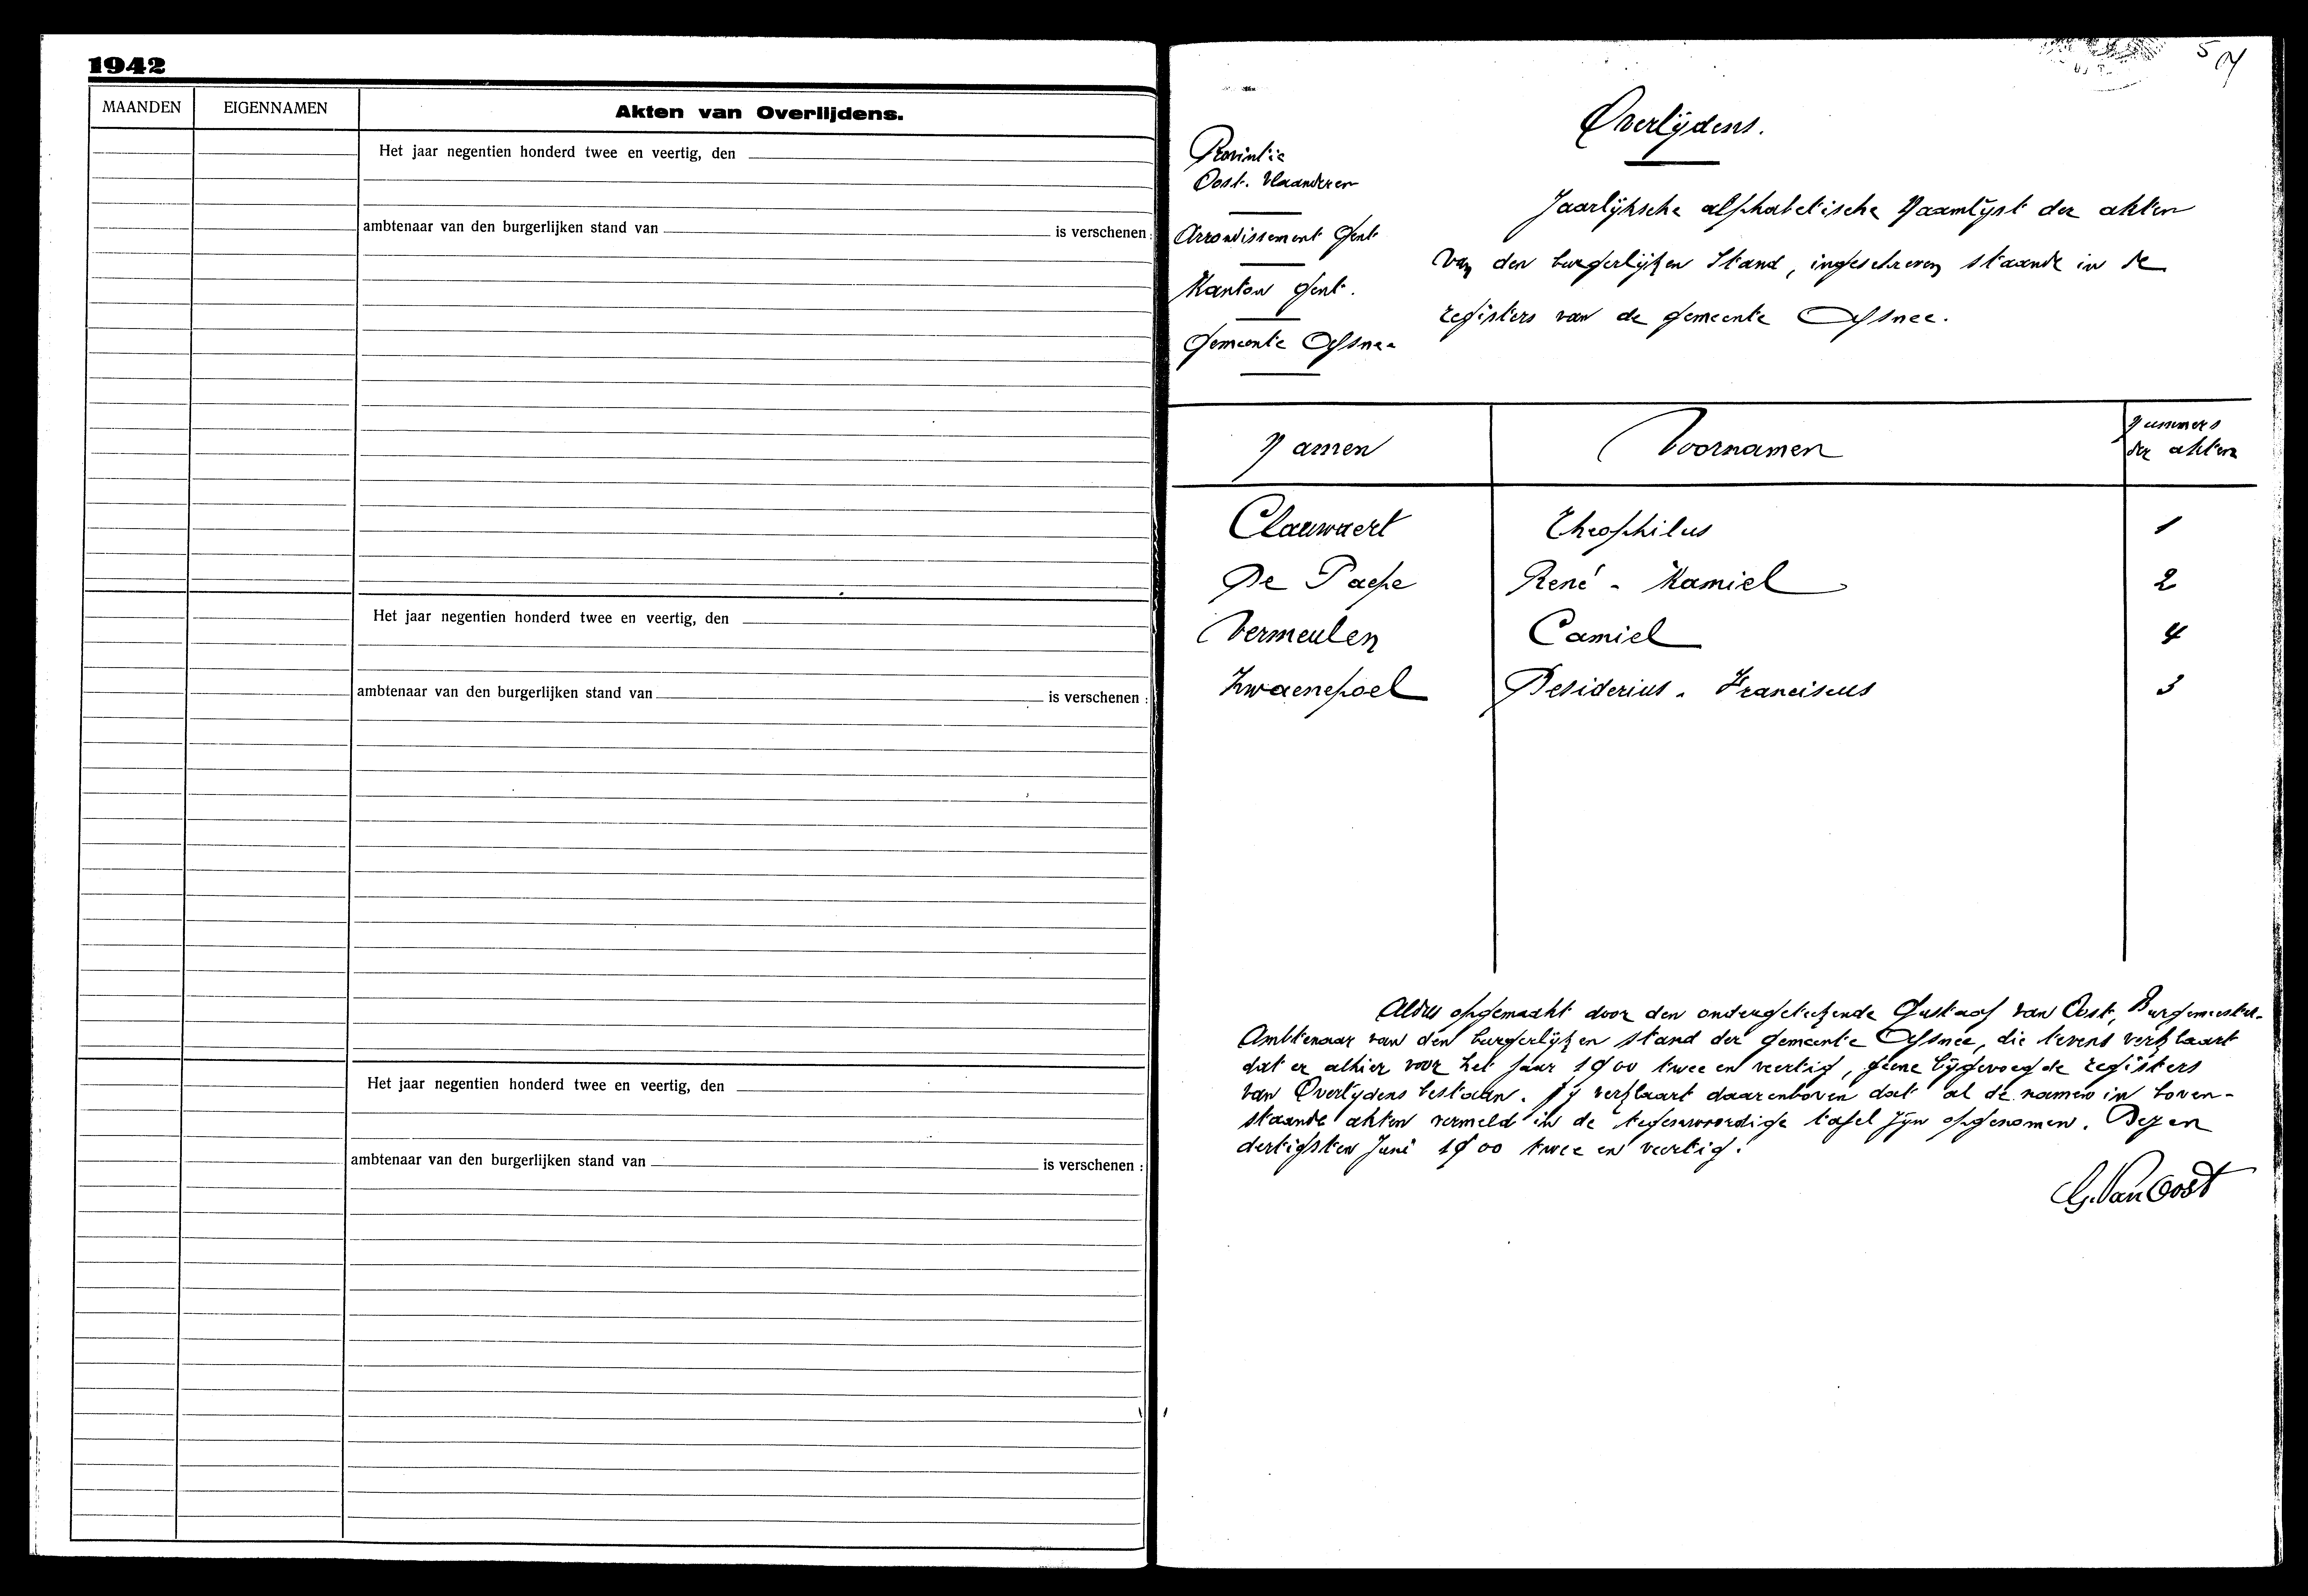 1942
MAANDEN EIGENNAMEN Akten van Overlijdens.
Het jaar negentien honderd twee en veertig, den
ambtenaar van den burgerlijken stand van is verschenen :
Het jaar negentien honderd twee en veertig, den
ambtenaar van den burgerlijken stand van is verschenen :
Het jaar negentien honderd twee en veertig, den
ambtenaar van den burgerlijken stand van is verschenen :
5
Overlijdens.
Provintie
Oost. Vlaanderen
Arrondissement Gent
Kanton Gent.
Gemeente Afsnee
Jaarlijksche alphabetische Naamlijst der akten
van den burgerlijken Stand, ingeschreven staande in de
registers van de gemeente Afsnee.
Namen Voornamen Nummers
der akten
Clauwaert Theophilus 1
De Paepe René - Kamiel 2
Vermeulen Camiel 4
Zwaenepoel Desiderius - Franciscus 3
Aldus opgemaakt door den ondergeteekende Gustaaf Van Oost, Burgemeester-
Ambtenaar van den burgerlijken stand der gemeente Afsnee, die tevens verklaart
dat er alhier voor het jaar 1900 twee en veertig, geene bijgevoegde registers
van Overlijdens bestaan. Hij verklaart daarenboven dat al de namen in boven-
staande akten vermeld in de tegenwoordige tafel zijn opgenomen. Dezen
dertigsten Juni 1900 twee en veertig.
G. Van Oost